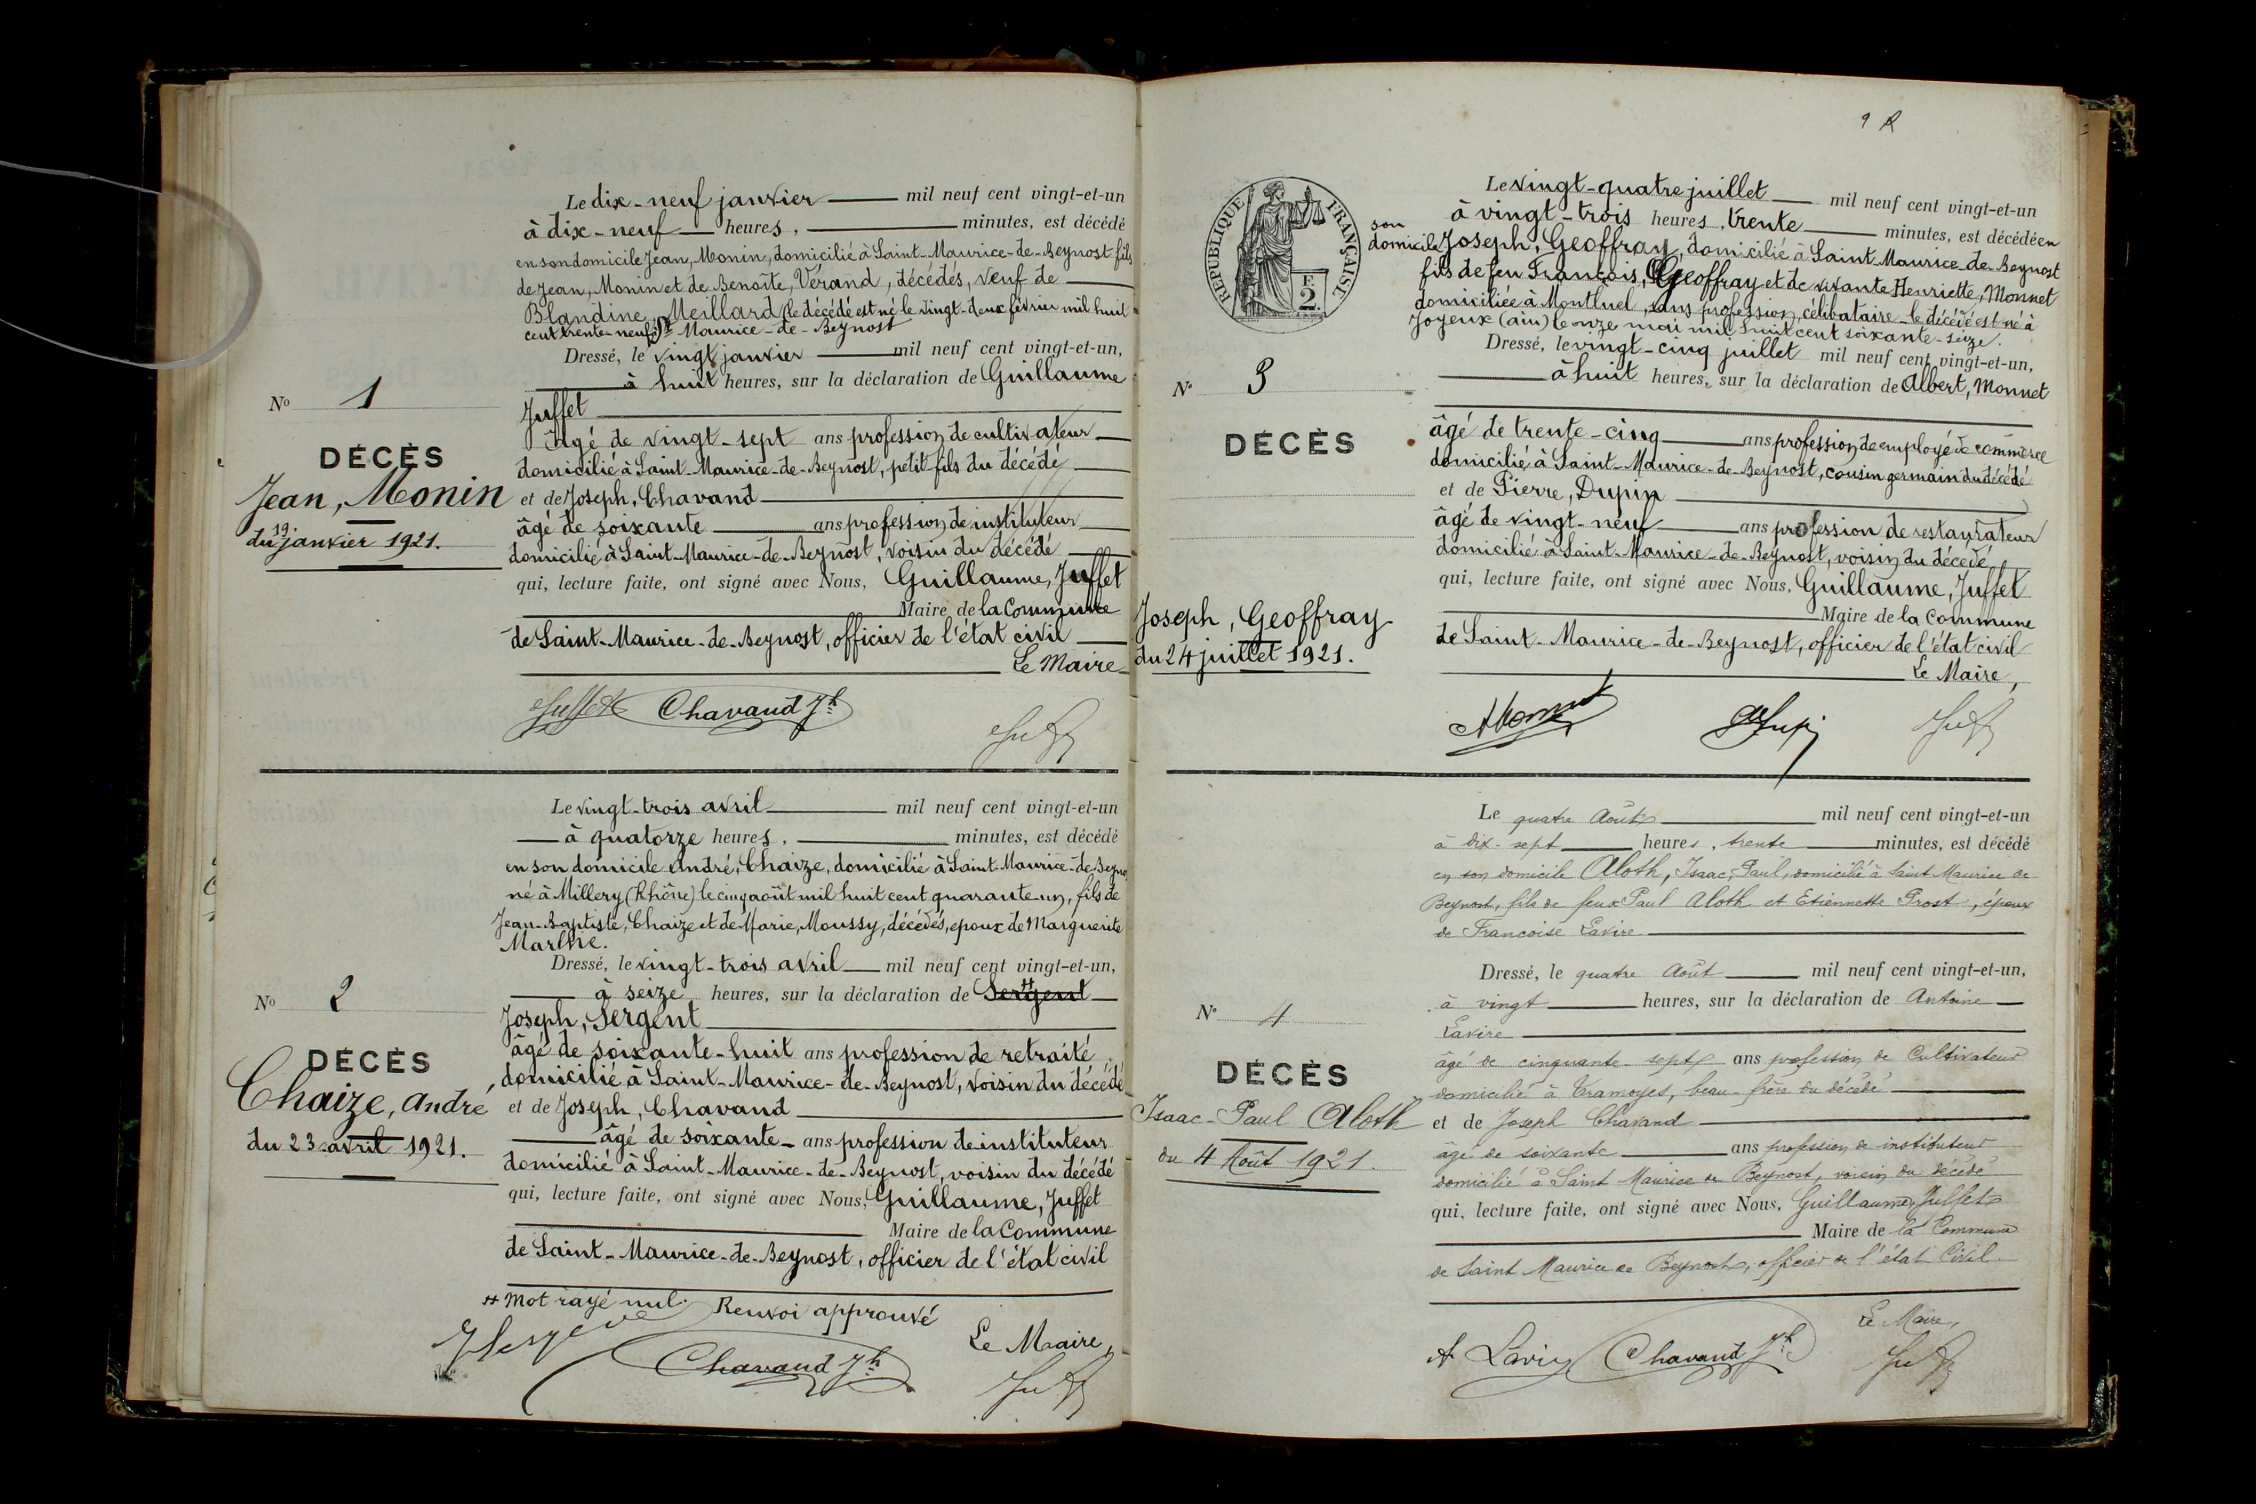 Le dix-neuf janvier mil neuf cent vingt-et-un
à dix-neuf heures, minutes, est décédé
en son domicile Jean, Monin, domicilié à Saint-Maurice-de-Beynost fils
de Jean, Monin et de Benoîte, Vérand, décédés, veuf de
Blandine, Meillard (le décédé est né le vingt-deux février mil huit
cent trente-neuf à St Maurice-de-Beynost
Dressé, le vingt janvier mil neuf cent vingt-et-un,
à huit heures, sur la déclaration de Guillaume
Juffet
No 1
DÉCÈS
Jean, Monin
du 19. janvier 1921.
âgé de vingt-sept ans profession de cultivateur
domicilié à Saint-Maurice-de-Beynost, petit fils du décédé
et de Joseph, Chavand
âgé de soixante ans profession de instituteur
domicilié à Saint-Maurice-de-Beynost, voisin du décédé
qui, lecture faite, ont signé avec Nous, Guillaume, Juffet
Maire de la Commune
de Saint-Maurice-de-Beynost, officier de l'état civil
Le Maire
Juffet Chavand Jh
Le vingt-trois avril mil neuf cent vingt-et-un
à quatorze heures, minutes, est décédé
en son domicile André, Chaize, domicilié à Saint-Maurice-de-Beyno
né à Millery (Rhône) le cinq août mil huit cent quarante-un, fils de
Jean-Baptiste, Chaize et de Marie, Moussy, décédés, époux de Marguerite
Marthe.
Dressé, le vingt-trois avril mil neuf cent vingt-et-un,
à seize heures, sur la déclaration de Sergent
Joseph, Sergent
No 2
DÉCÈS
Chaize, André
du 23 avril 1921.
âgé de soixante-huit ans profession de retraité
domicilié à Saint-Maurice-de-Beynost, voisin du décédé
et de Joseph, Chavand
âgé de soixante ans profession de instituteur
domicilié à Saint-Maurice-de-Beynost, voisin du décédé
qui, lecture faite, ont signé avec Nous, Guillaume, Juffet
Maire de la Commune
de Saint-Maurice-de-Beynost, officier de l'état civil
Mot rayé nul. Renvoi approuvé
Le Maire,
Chavand Jh
RÉPUBLIQUE FRANÇAISE
F.
2.
Le vingt-quatre juillet mil neuf cent vingt-et-un
à vingt-trois heures, trente minutes, est décédé en
son
domicile Joseph, Geoffray, domicilié à Saint-Maurice-de-Beynost
fils de feu François, Geoffray et de vivante Henriette, Monnet
domiciliée à Montluel, sans profession, célibataire - le décédé est né à
Joyeux (ain) le onze mai mil huit cent soixante-seize.
Dressé, le vingt-cinq juillet mil neuf cent vingt-et-un,
à huit heures, sur la déclaration de Albert, Monnet
No 3
DÉCÈS
Joseph, Geoffray
du 24 juillet 1921.
âgé de trente-cinq ans profession de employé de commerce
domicilié à Saint-Maurice-de-Beynost, cousin germain du décédé
et de Pierre, Dupin
âgé de vingt-neuf ans profession de restaurateur
domicilié à Saint-Maurice-de-Beynost, voisin du décédé
qui, lecture faite, ont signé avec Nous, Guillaume, Juffet
Maire de la Commune
de Saint-Maurice-de-Beynost, officier de l'état civil
Le Maire,
AMonnet
Le quatre Août mil neuf cent vingt-et-un
à dix-sept heures, trente minutes, est décédé
en son domicile Aloth, Isaac, Paul, domicilié à Saint Maurice de
Beynost, fils de feux Paul Aloth et Etiennette Prost, époux
de Francoise Lavire
Dressé, le quatre Août mil neuf cent vingt-et-un,
à vingt heures, sur la déclaration de Antoine
Lavire
No 4
DÉCÈS
Isaac-Paul Aloth
du 4 Août 1921.
âgé de cinquante-sept ans profession de Cultivateur
domicilié à Tramoyes, beau-frère du décédé
et de Joseph Chavand
âgé de soixante ans profession de instituteur
domicilié à Saint Maurice de Beynost, voisin du décédé
qui, lecture faite, ont signé avec Nous, Guillaume, Juffet
Maire de la Commune
de Saint Maurice de Beynost, officier de l'état Civil.
Le Maire,
A Lavire Chavand Jh